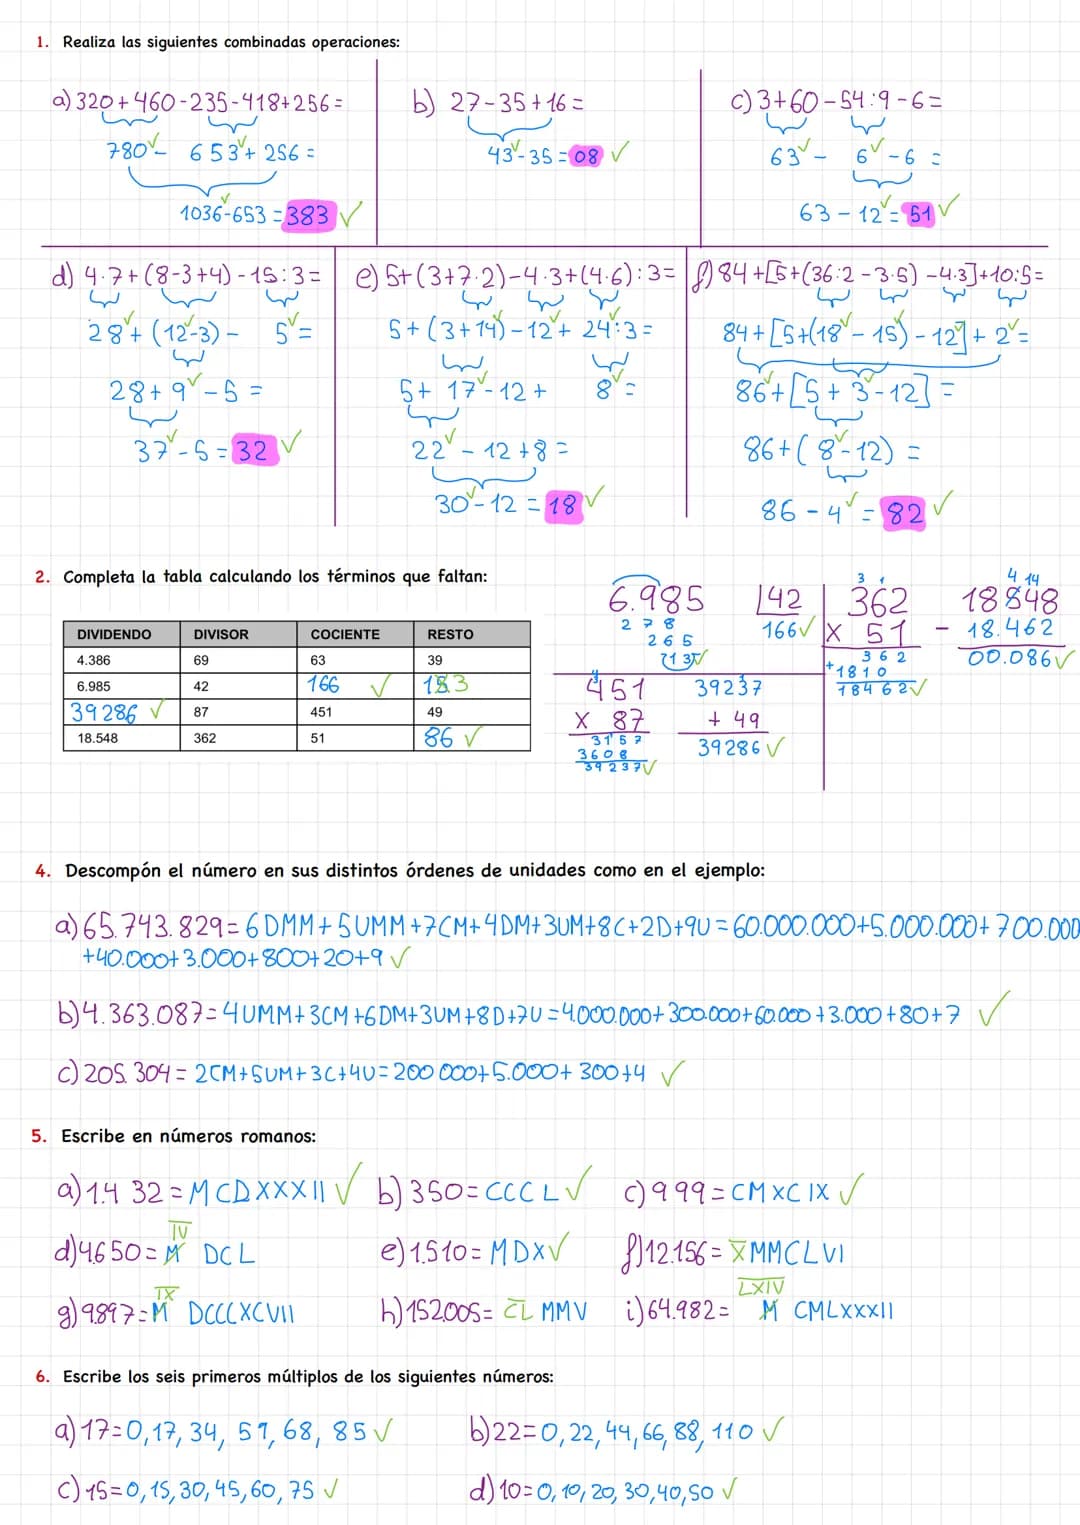 1. Realiza las siguientes combinadas operaciones:
a) 320+460-235-418+256=
780✓- 653✓+256=
1036✓-653=383 ✓
b) 27-35+16=
43✓-35=08 ✓
c) 3+60-54:9-6=
63✓- 6✓-6=
63-12✓=51 ✓
d) 4·7+(8-3+4)-15:3=
28✓+(12✓-3)- 5✓=
28+9✓-5=
37✓-5=32 ✓
e) 5+(3+7·2)-4·3+(4·6):3=
5+(3+14✓)-12✓+ 24✓:3=
5+ 17✓-12+ 8✓=
22✓-12+8=
30✓-12=18 ✓
f) 84+[5+(36:2-3·5)-4·3]+10:5=
84+[5+(18✓-15✓)-12✓]+2✓=
86✓+[5+3✓-12]=
86+(8✓-12)=
86-4✓=82 ✓
2. Completa la tabla calculando los términos que faltan:
DIVIDENDO DIVISOR COCIENTE RESTO
4.386 69 63 39
6.985 42 166 ✓
39286 ✓ 87 451 49
18.548 362 51 86 ✓
6.985 42
278 166✓
265
451
X 87
3157
3608
39237✓
39237
+ 49
39286✓
362
X 51
362
+1810
18462✓
- 18.462
00.086✓
4. Descompón el número en sus distintos órdenes de unidades como en el ejemplo:
a) 65.743.829=6DMM+5UMM+7CM+4DM+3UM+8C+2D+9U=60.000.000+5.000.000+700.000
+40.000+3.000+800+20+9 ✓
b) 4.363.087=4UMM+3CM+6DM+3UM+8D+7U=4.000.000+300.000+60.000+3.000+80+7 ✓
c) 205.304=2CM+5UM+3C+4U=200 000+5.000+300+4 ✓
5. Escribe en números romanos:
a) 1.432=MCDXXXII ✓ b) 350=CCCL ✓ c) 999=CMXCIX ✓
d) 4650= I̅V̅ DCL e) 1.510=MDX✓ f) 12.156=X̅MMCLVI
g) 9.897= I̅X̅ DCCCXCVII h) 152.005= C̅L̅ MMV i) 64.982= L̅X̅I̅V̅ CMLXXXII
6. Escribe los seis primeros múltiplos de los siguientes números:
a) 17=0,17,34, 51,68, 85 ✓ b) 22=0,22,44,66,88,110 ✓
c) 15=0,15,30,45,60,75 ✓ d) 10=0,10,20,30,40,50 ✓